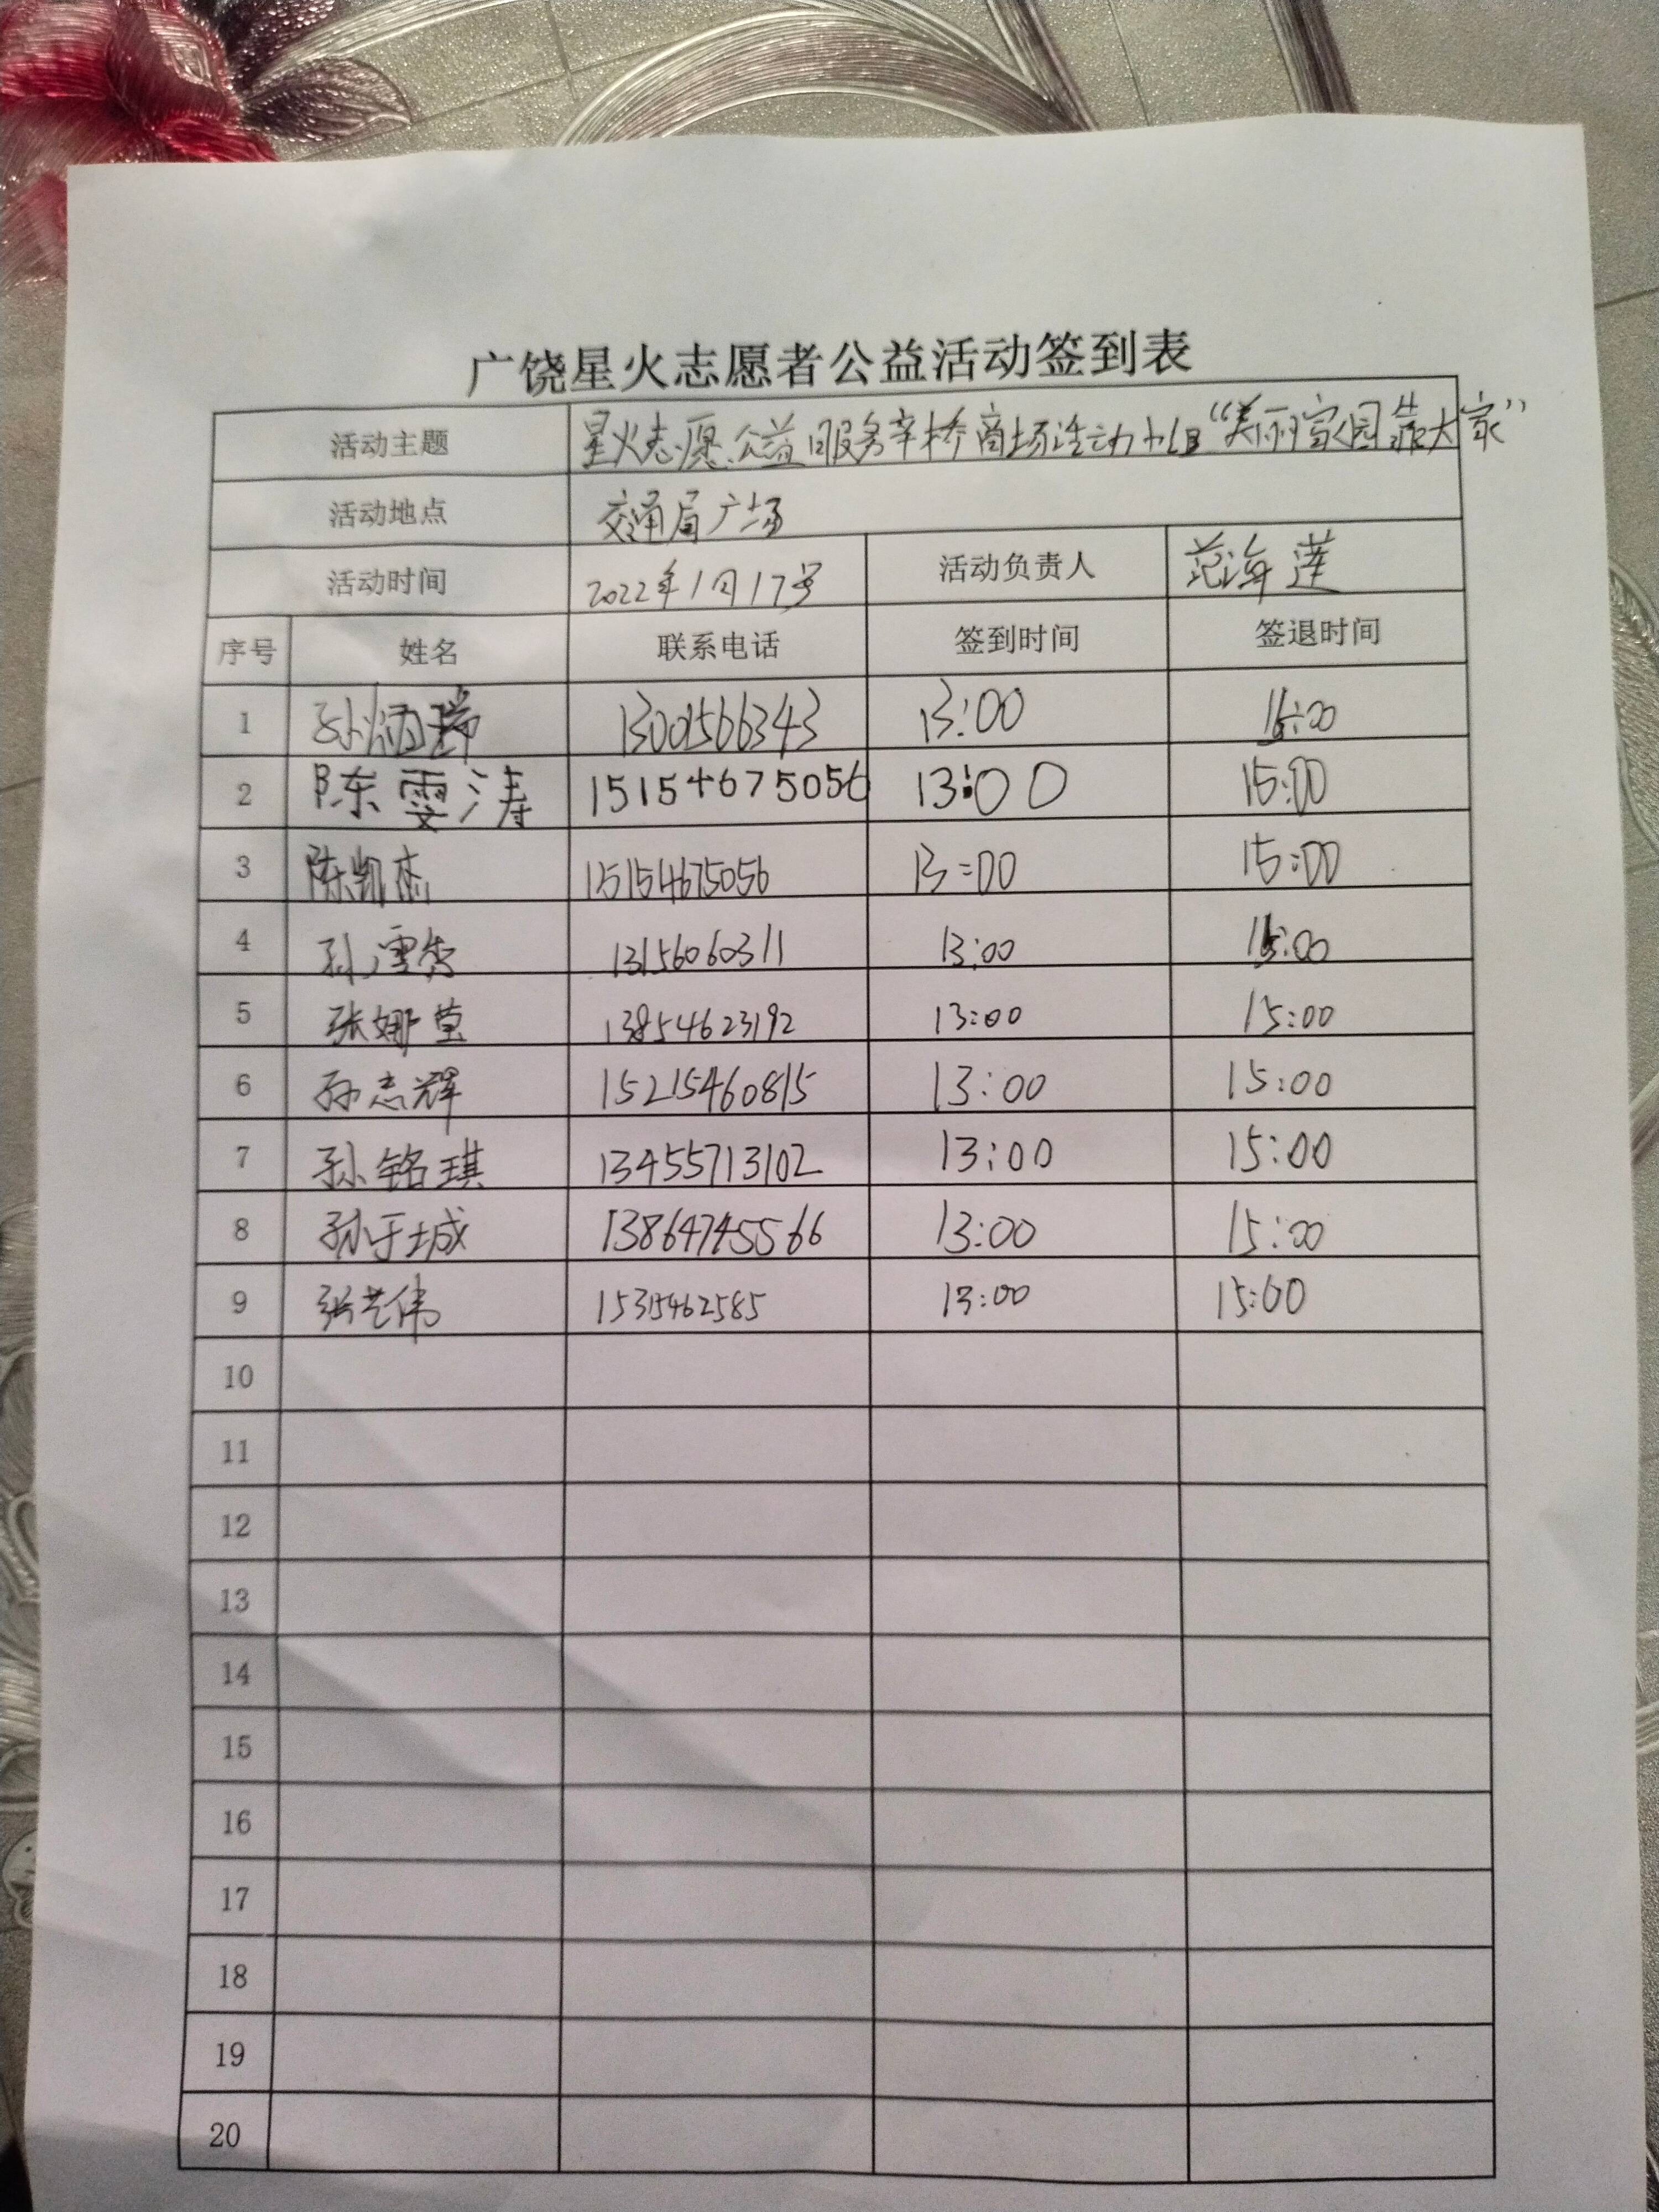 广饶星火志愿者公益活动签到表
活动主题 星火志愿公益服务辛桥商场活动小组“美丽家园靠大家”
活动地点 交通局广场
活动时间 2022年1月17号 活动负责人 范海莲
序号 姓名 联系电话 签到时间 签退时间
1 孙炳瑞 13001566343 13:00 15:00
2 陈雯涛 15154675056 13:00 15:00
3 陈凯杰 15154675056 13:00 15:00
4 孙雪芳 13156060311 13:00 15:00
5 张娜莹 13854623192 13:00 15:00
6 孙志辉 15215460815 13:00 15:00
7 孙铭琪 13455713102 13:00 15:00
8 孙于城 13864745566 13:00 15:00
9 张艺伟 15315462585 13:00 15:00
10
11
12
13
14
15
16
17
18
19
20